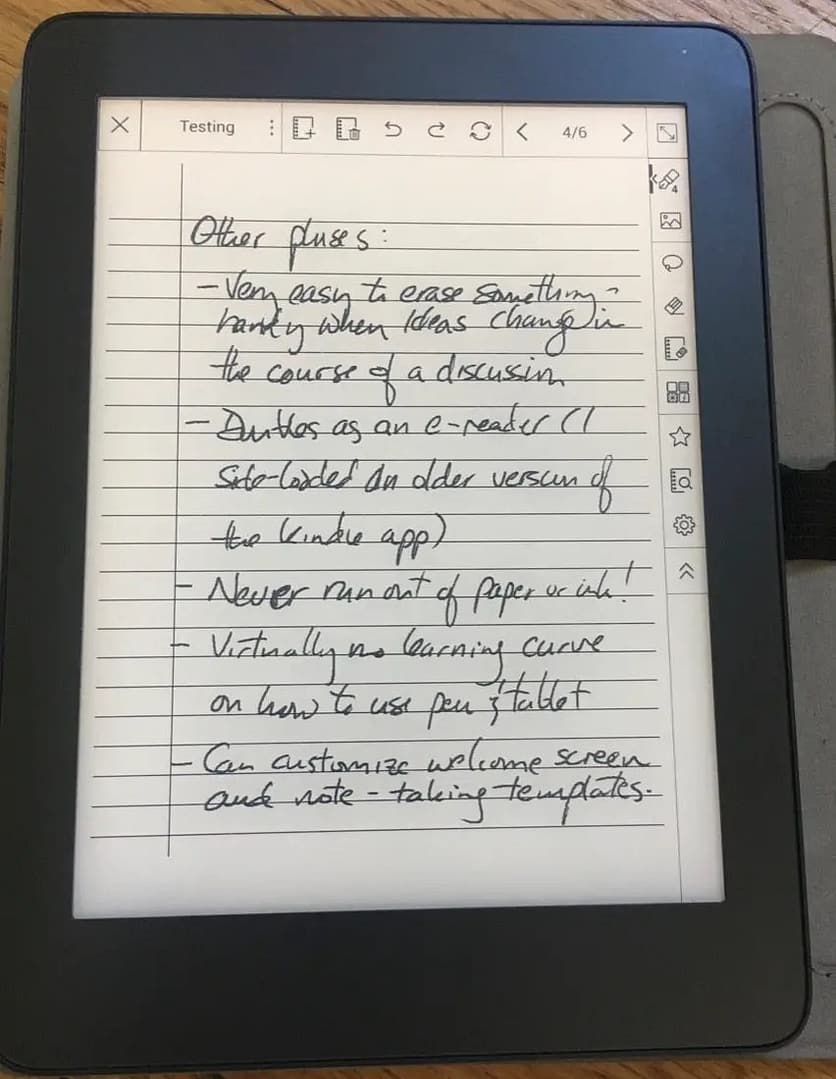 Testing
4/6
Other pluses:
- Very easy to erase something -
handy when ideas change in
the course of a discussion
- Doubles as an e-reader (I
side-loaded an older version of
the Kindle app)
- Never run out of paper or ink!
- Virtually no learning curve
on how to use pen & tablet
- Can customize welcome screen
and note-taking templates.